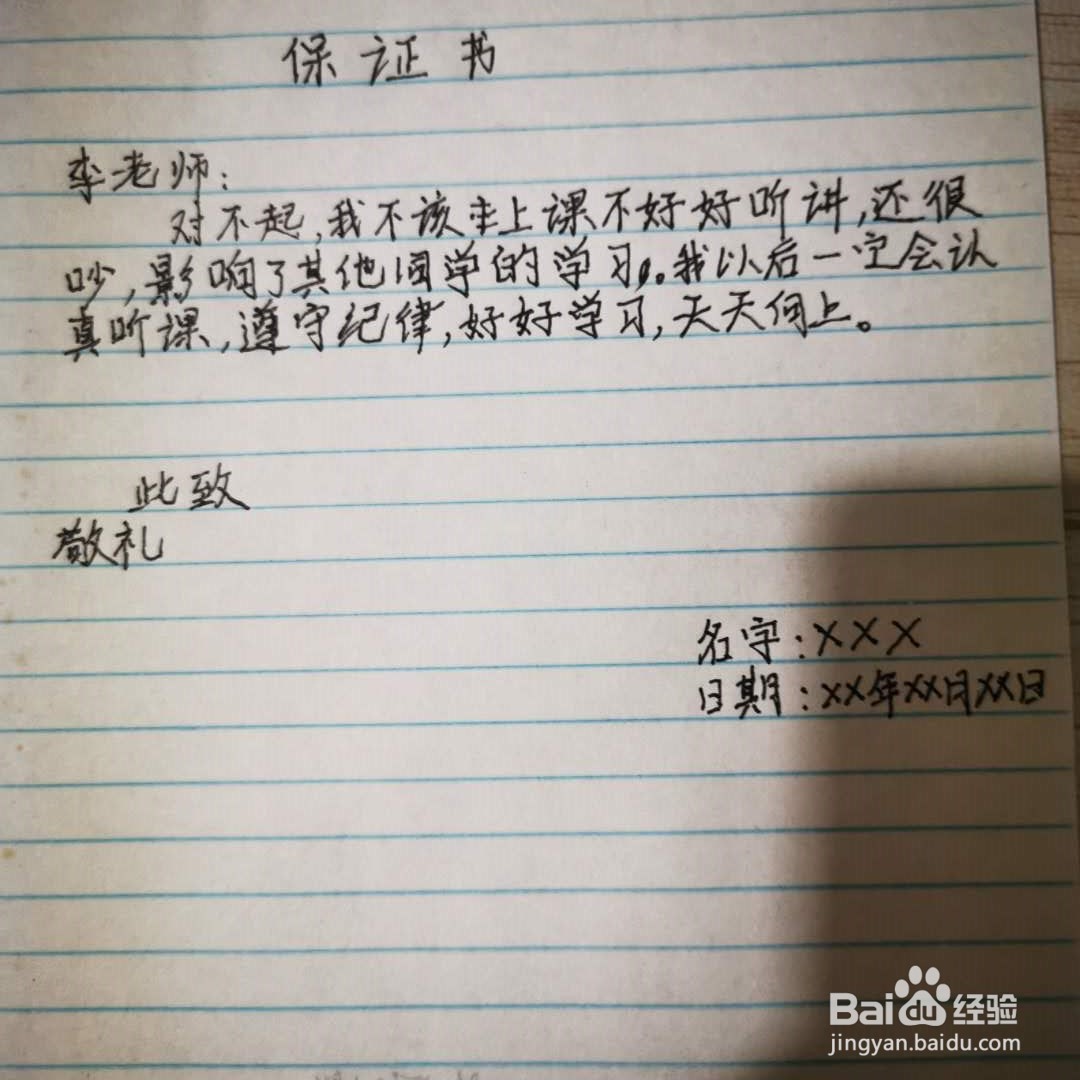 保证书
李老师：
对不起，我不该在上课不好好听讲，还很
吵，影响了其他同学的学习。我以后一定会认
真听课，遵守纪律，好好学习，天天向上。
此致
敬礼
名字：XXX
日期：XX年XX月XX日
Baidu经验
jingyan.baidu.com